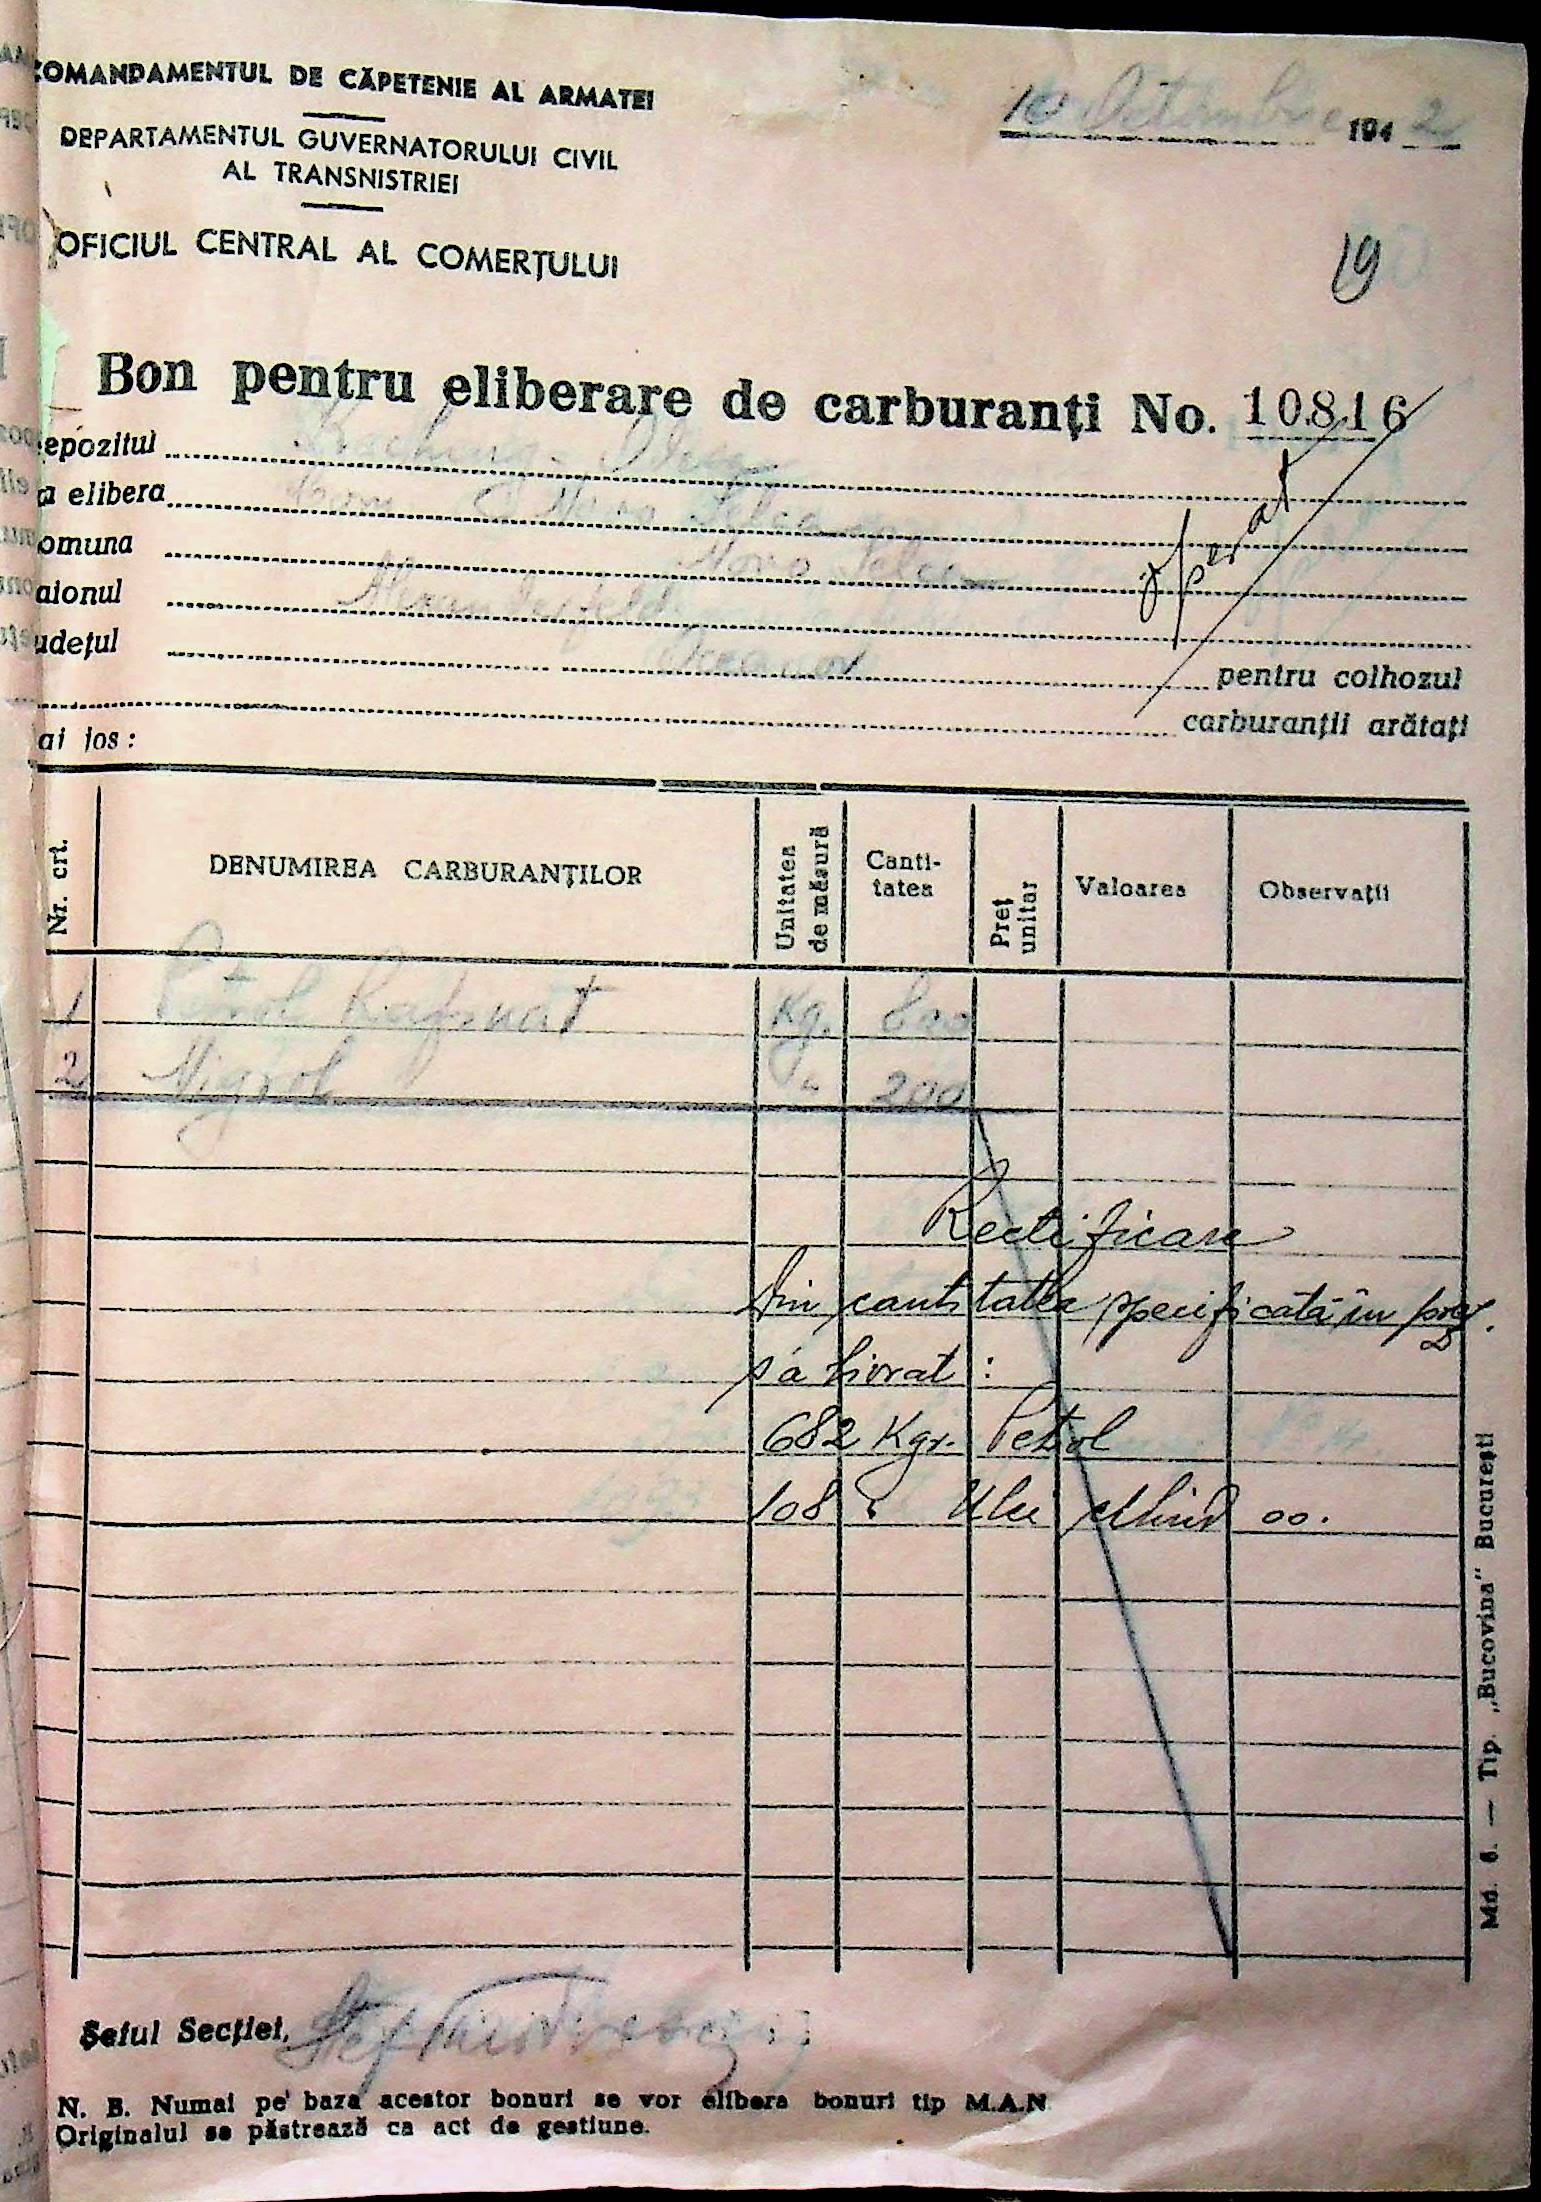 COMANDAMENTUL DE CĂPETENIE AL ARMATEI
DEPARTAMENTUL GUVERNATORULUI CIVIL
AL TRANSNISTRIEI
OFICIUL CENTRAL AL COMERȚULUI
10 Octombrie 1942
19
Bon pentru eliberare de carburanți No. 10816
epozitul
a elibera
omuna Novo
aionul Alexanderfeld
udețul Oceacov pentru colhozul
carburanții arătați
ai jos:
operat
Nr. crt. DENUMIREA CARBURANȚILOR Unitatea de măsură Canti-tatea Preț unitar Valoarea Observații
1 Petrol Rafinat Kg. 800
2 Migrol " 200
Rectificare
Din cantitatea specificată în
s'a livrat:
682 Kgr. Petrol
108 " Ulei 00.
Șeful Secției,
N. B. Numai pe baza acestor bonuri se vor elibera bonuri tip M.A.N
Originalul se păstrează ca act de gestiune.
Md. 6. — Tip. „Bucovina" București